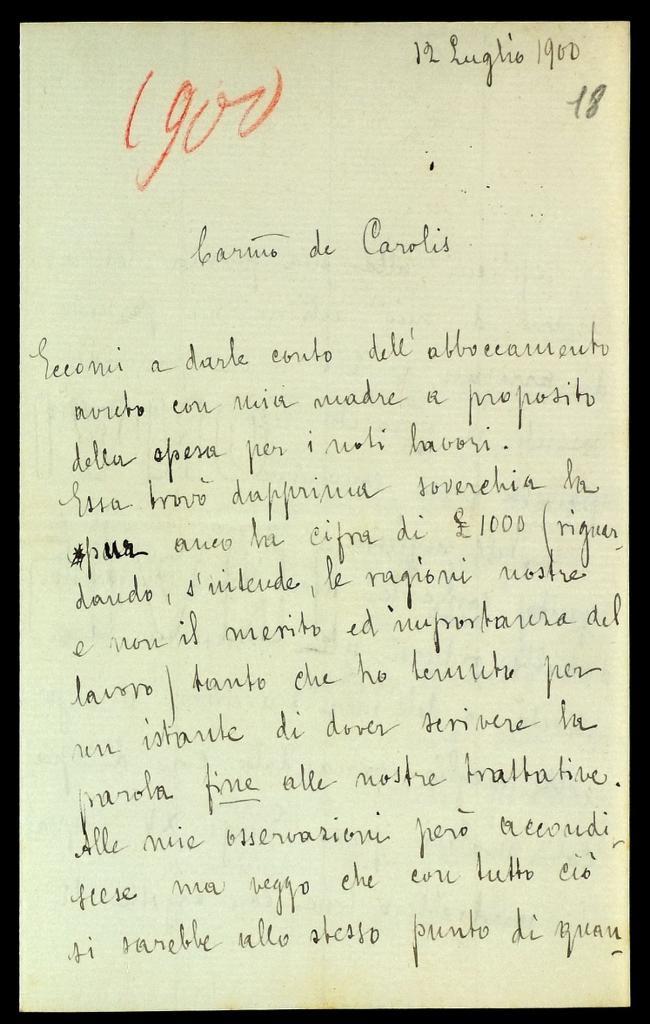 12 Luglio 1900
1900
18
Carmo de Carolis
Eccomi a darle conto dell'abboccamento
avuto con mia madre a proposito
della spesa per i noti lavori.
Essa trovò dapprima soverchia la
anco la cifra di £ 1000 (riguar-
dando, s'intende, le ragioni nostre
e non il merito ed importanza del
lavoro) tanto che ho temuto per
un istante di dover scrivere la
parola fine alle nostre trattative.
Alle mie osservazioni però accondi-
scese ma veggo che con tutto ciò
si sarebbe allo stesso punto di quan-